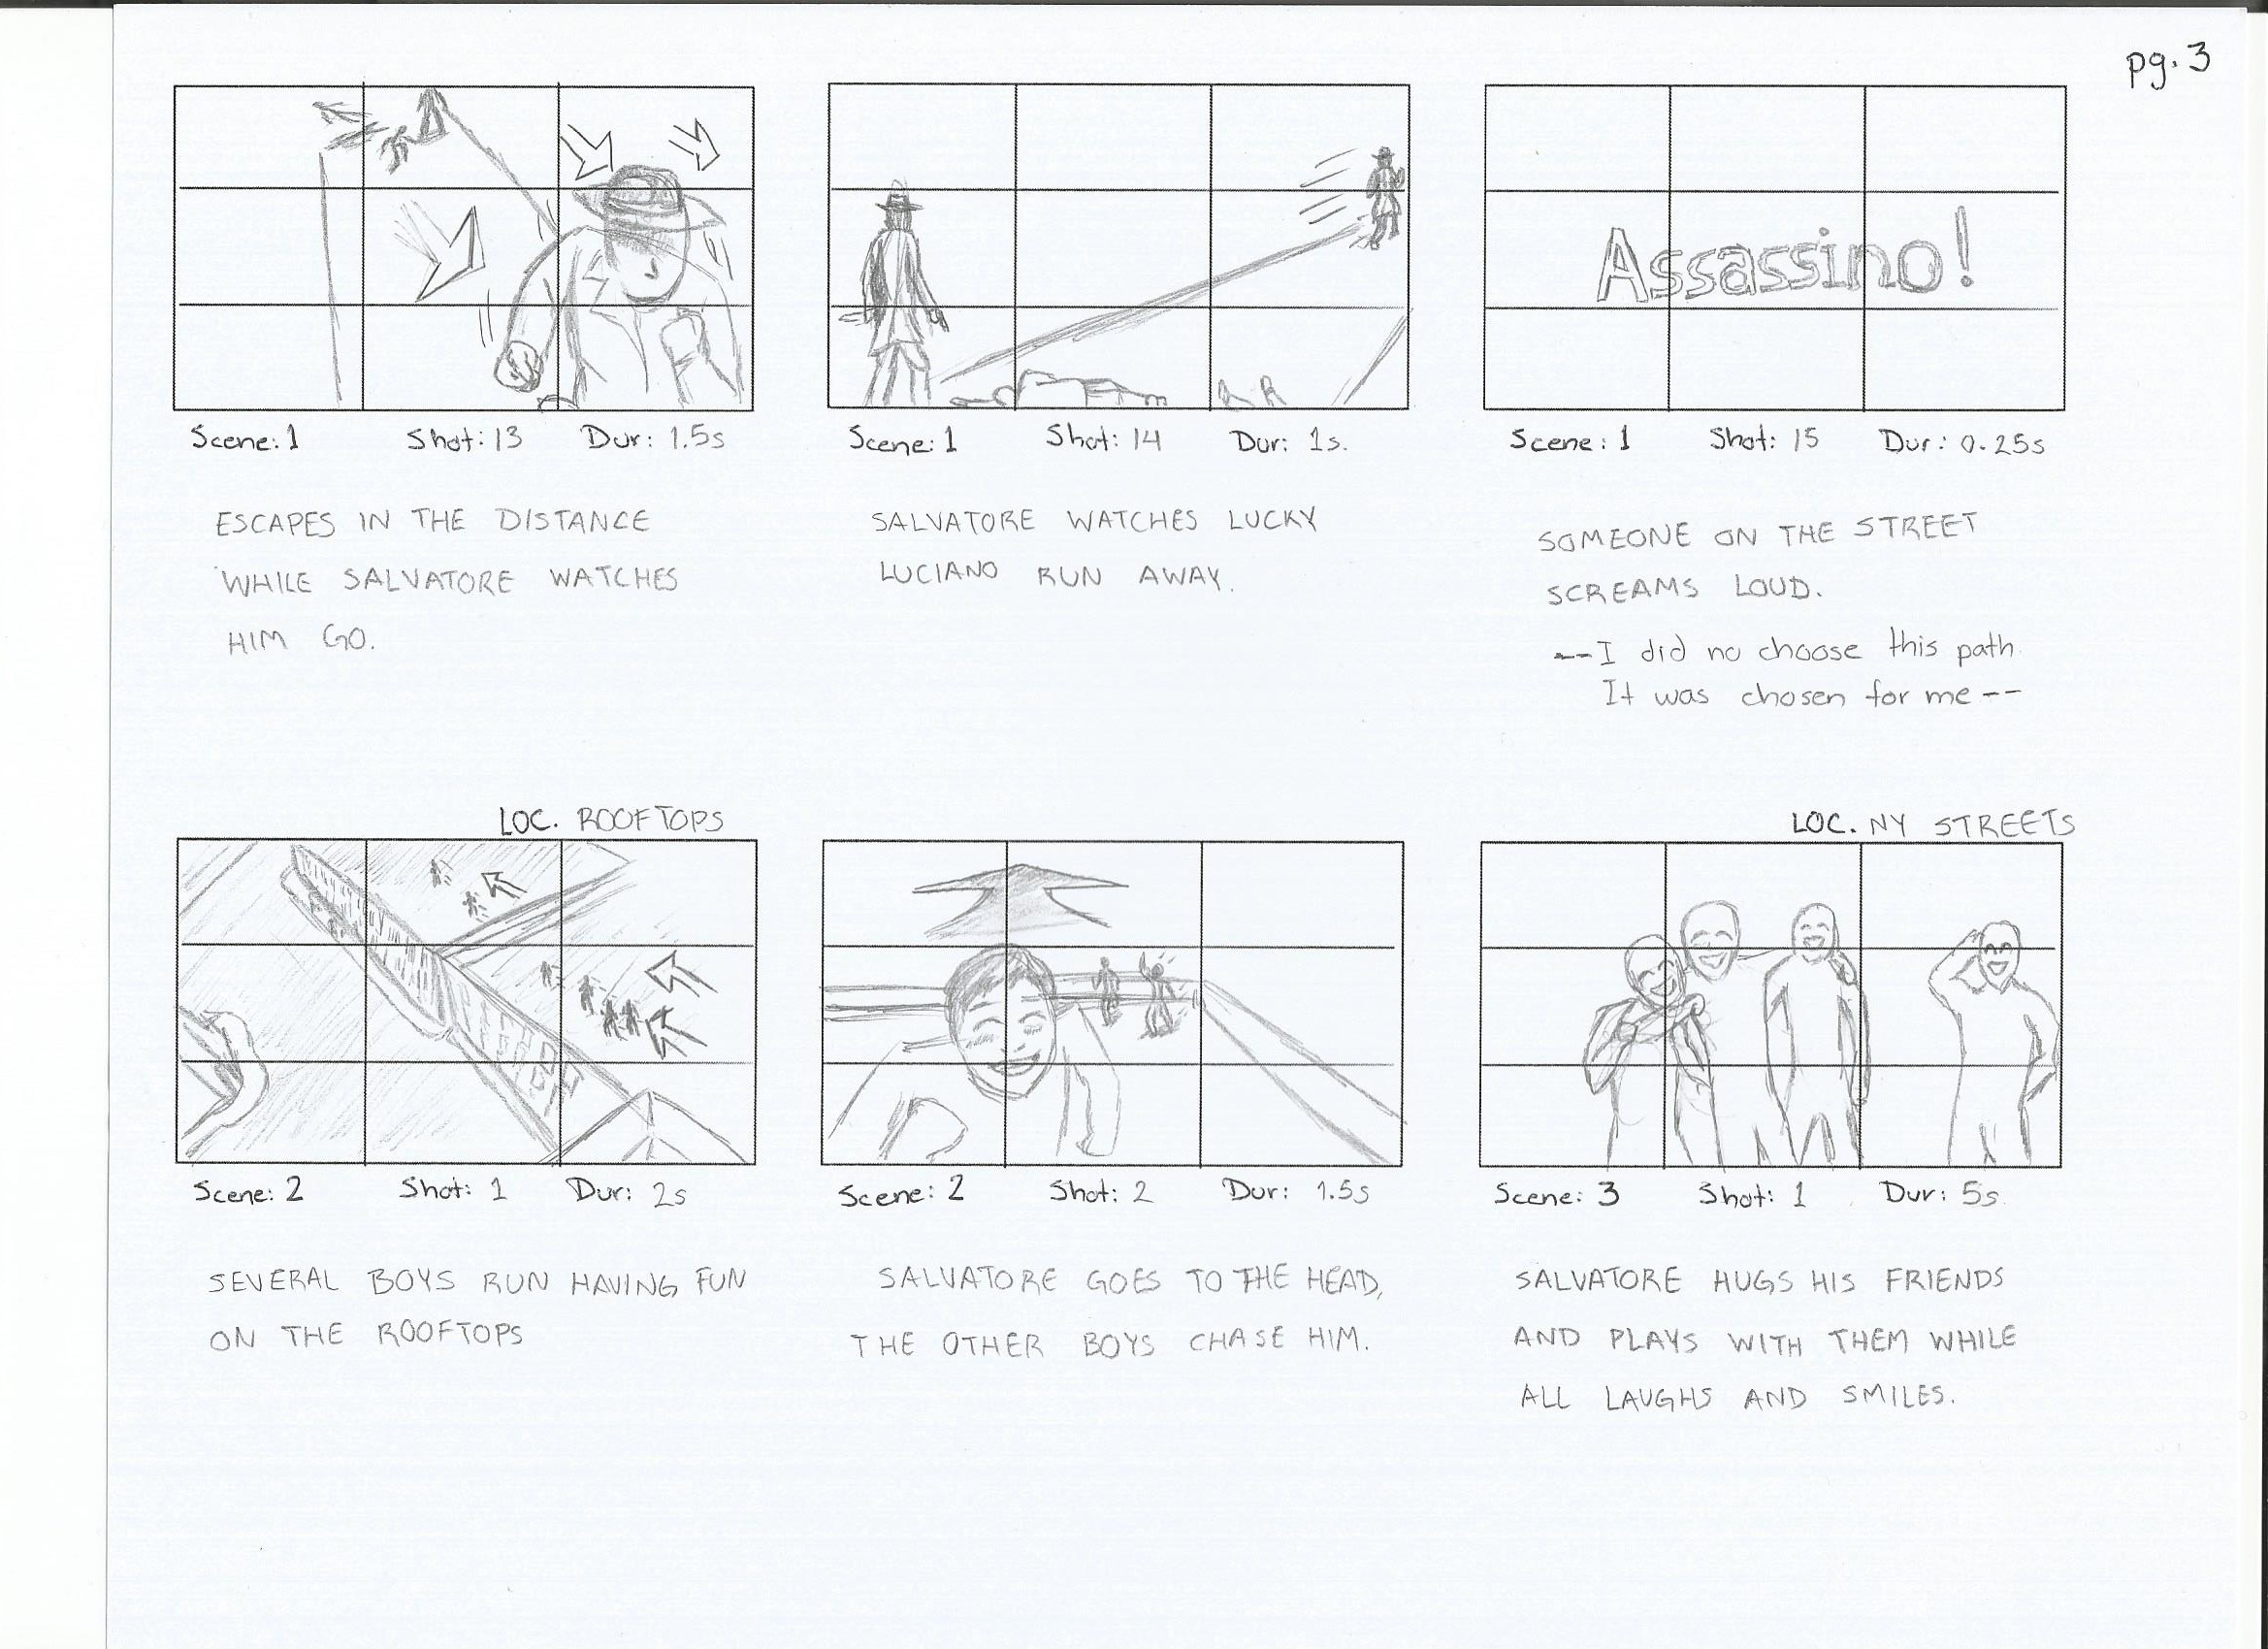 pg. 3
Scene: 1 Shot: 13 Dur: 1.5s
ESCAPES IN THE DISTANCE
WHILE SALVATORE WATCHES
HIM GO.
Scene: 1 Shot: 14 Dur: 1s.
SALVATORE WATCHES LUCKY
LUCIANO RUN AWAY.
Assassino!
Scene: 1 Shot: 15 Dur: 0.25s
SOMEONE ON THE STREET
SCREAMS LOUD.
--I did no choose this path
It was chosen for me--
LOC. ROOFTOPS
Scene: 2 Shot: 1 Dur: 2s
SEVERAL BOYS RUN HAVING FUN
ON THE ROOFTOPS
Scene: 2 Shot: 2 Dur: 1.5s
SALVATORE GOES TO THE HEAD,
THE OTHER BOYS CHASE HIM.
LOC. NY STREETS
Scene: 3 Shot: 1 Dur: 5s
SALVATORE HUGS HIS FRIENDS
AND PLAYS WITH THEM WHILE
ALL LAUGHS AND SMILES.